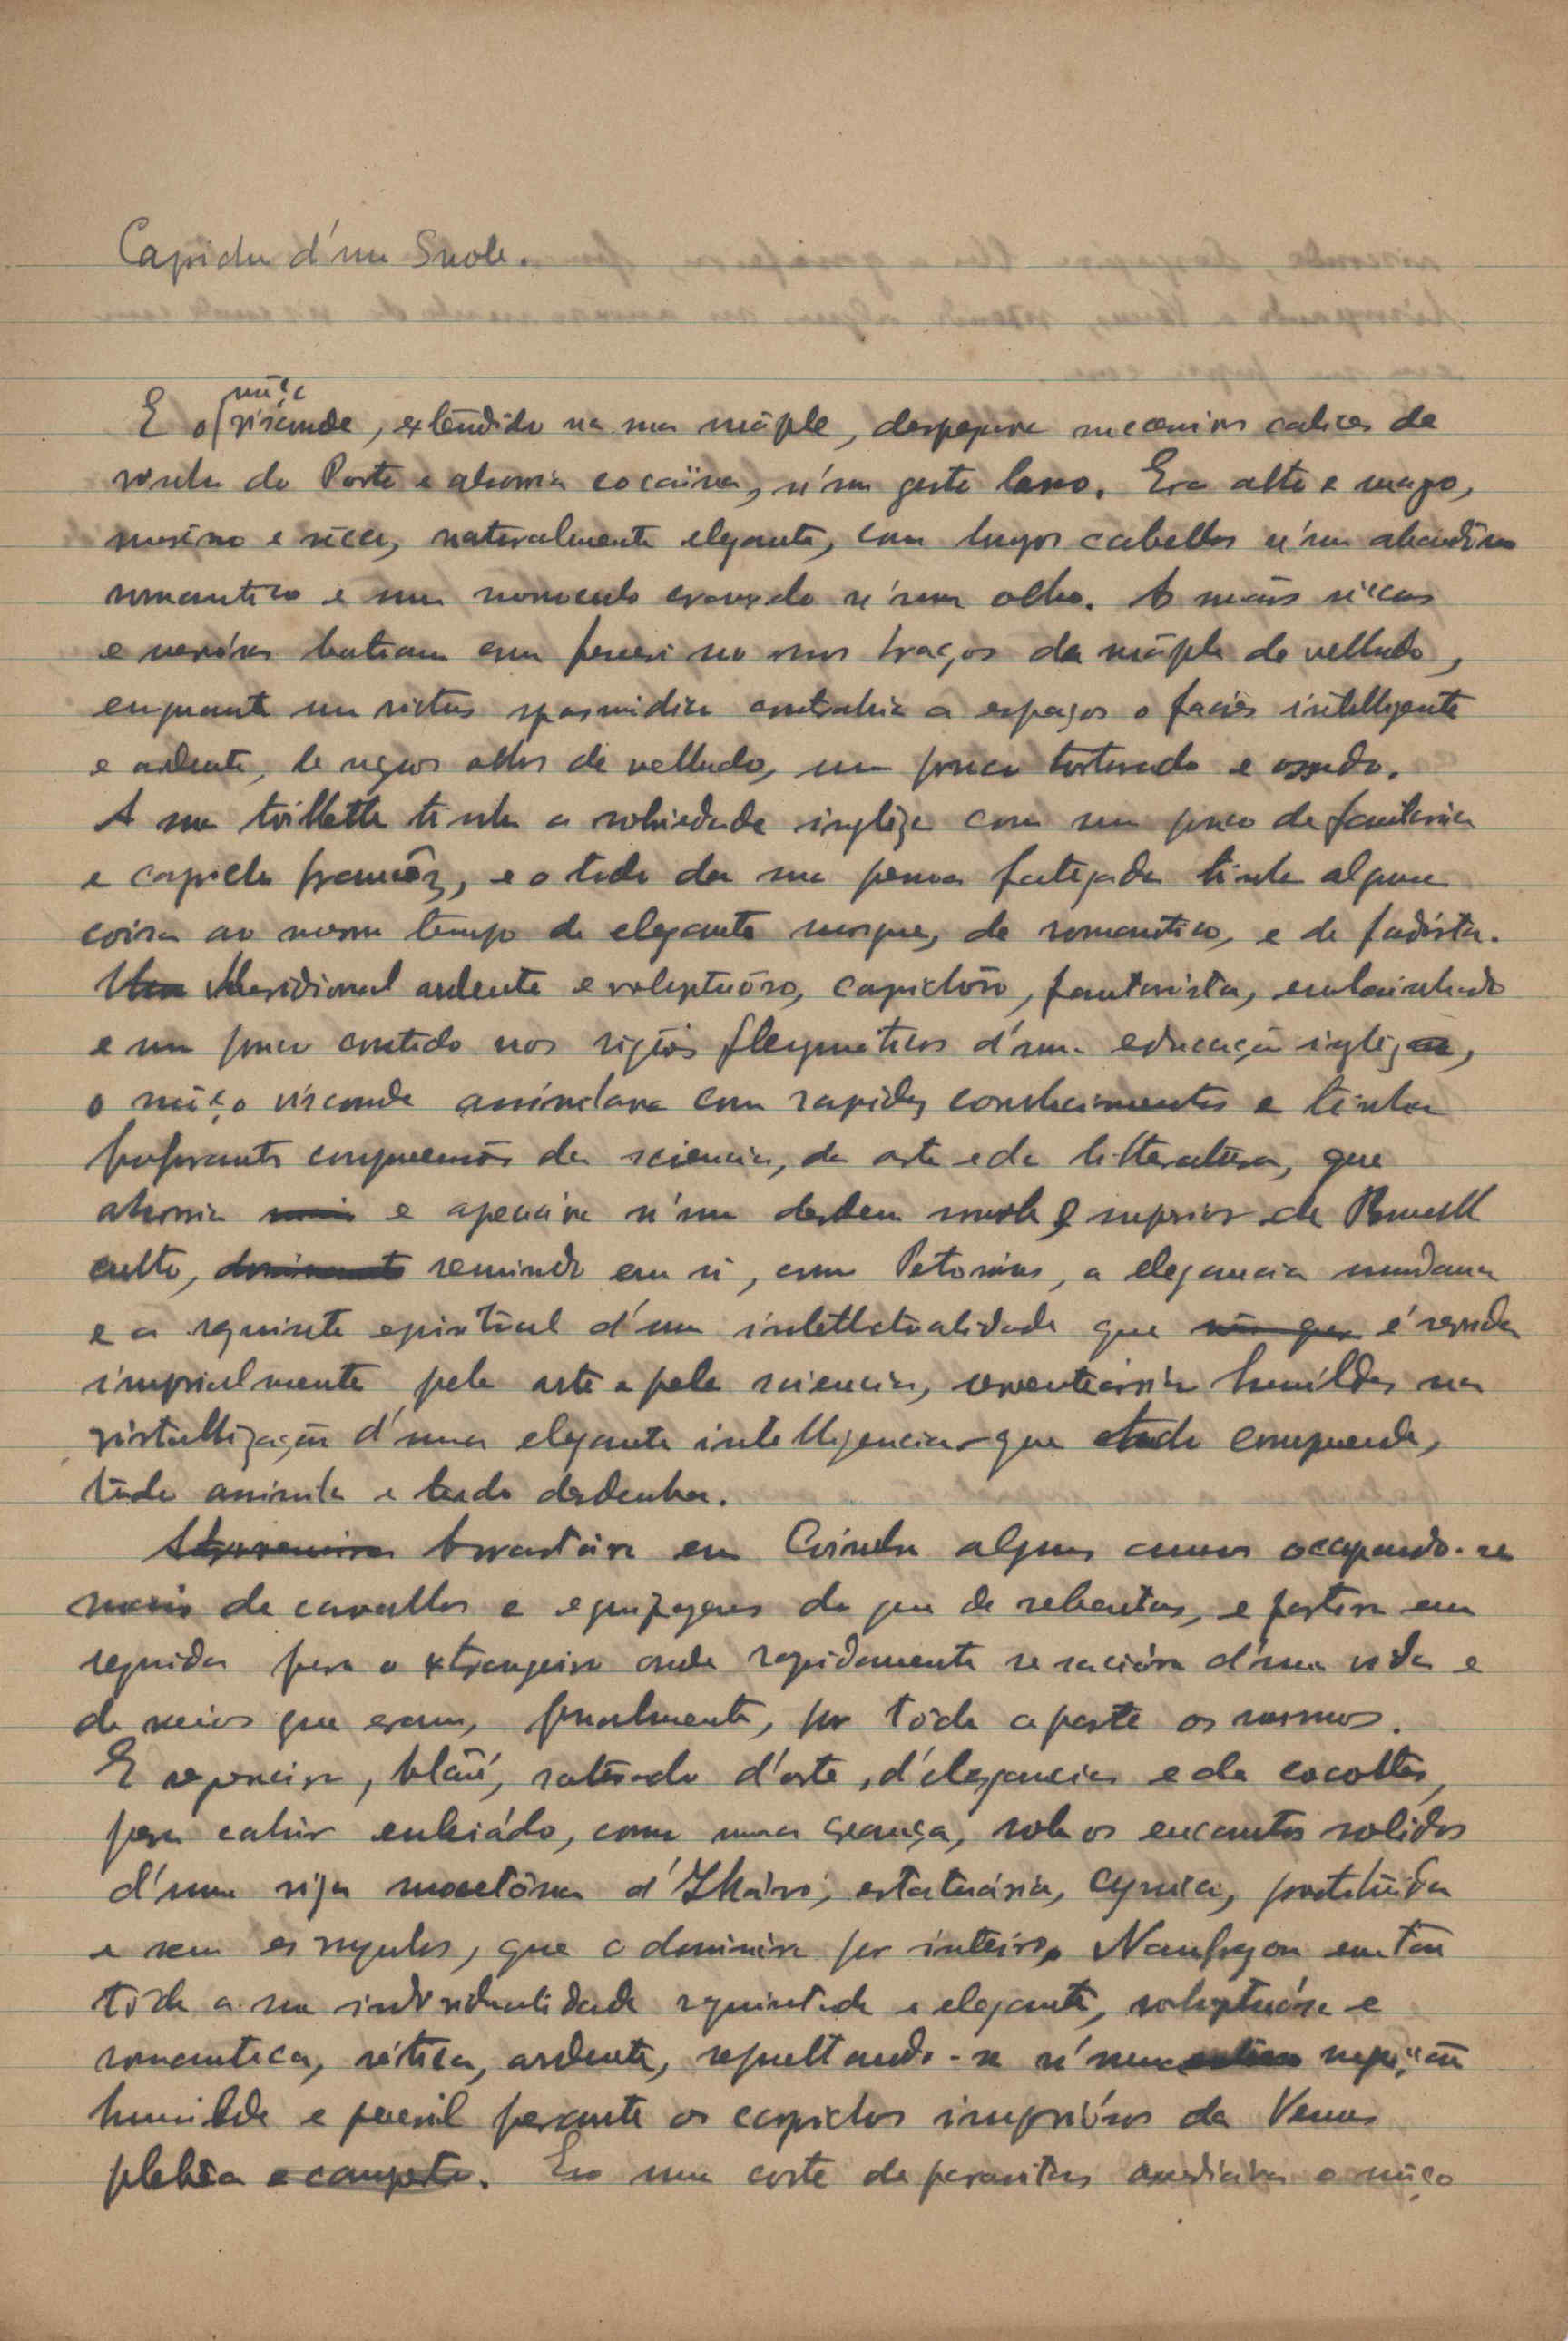 Capricho d'um Snob.
moço
E o visconde, extendido na sua máple, despejava successivos calices de
vinho do Porto e absorvia cocaïna, n'um gesto lasso. Era alto e magro,
moreno e sêcco, naturalmente elegante, com longos cabellos n'um abandôno
romantico e um monoculo cravado n'um olho. As mãos sêccas
e nervósas batiam com frenesi nos braços da máple de velludo,
emquanto um rictus spasmodico contrahia a espaços o faciès intelligente
e ardente, de negros olhos de velludo, um pouco torturado e ossudo.
A sua toillette tinha a sobriedade ingleza com um pouco de fantasia
e capricho francêz, e o todo da sua pessoa fatigada tinha alguma
coisa ao mesmo tempo de elegante, de romantico, e de fadista.
Meridional ardente e voluptuôso, caprichôso, fantasista, embainhado
e um pouco contido nos rigôres flegmaticos d'uma educação ingleza,
o môço visconde assimilava com rapidez conhecimentos e tinha
comprehensão da sciencia, da arte e da litteratura, que
absorvia e apreciava n'um desdem snob e superior de Brummell
culto, reunindo em si, como Petronius, a elegancia mundana
e o requinte espiritual d'uma intellectualidade que é servida
imperialmente pela arte e pela sciencia, humildes na
cristallização d'uma elegante intelligencia que tudo comprehende,
tudo assimila e tudo desdenha.
Arrastára em Coimbra alguns annos occupando-se
mais de cavallos e equipagens do que de sebentas, e partira em
seguida para o extrangeiro onde rapidamente se saciára d'uma vida e
de meios que eram, finalmente, por tôda a parte os mesmos.
E regressára, blasé, saturado d'arte, d'elegancias e de cocottes,
para cahir enleiádo, como uma creança, sob os encantos solidos
d'uma rija mocetôna d'Ilhávo, estatuária, cynica, prostituida
e sem escrupulos, que o dominára por inteiro. Naufragou então
tôda a sua individualidade requintada e elegante, voluptuósa e
romantica, scética, ardente, sepultando-se n'uma sujeição
humilde e pueril perante os caprichos imperiósos da Venus
plebêa. E uma corte de parasitas assediava o môço